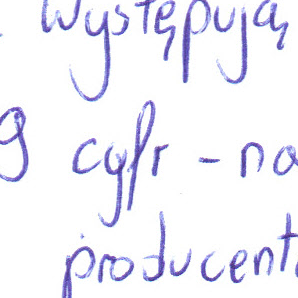 występują
9 cyfr - na
producent